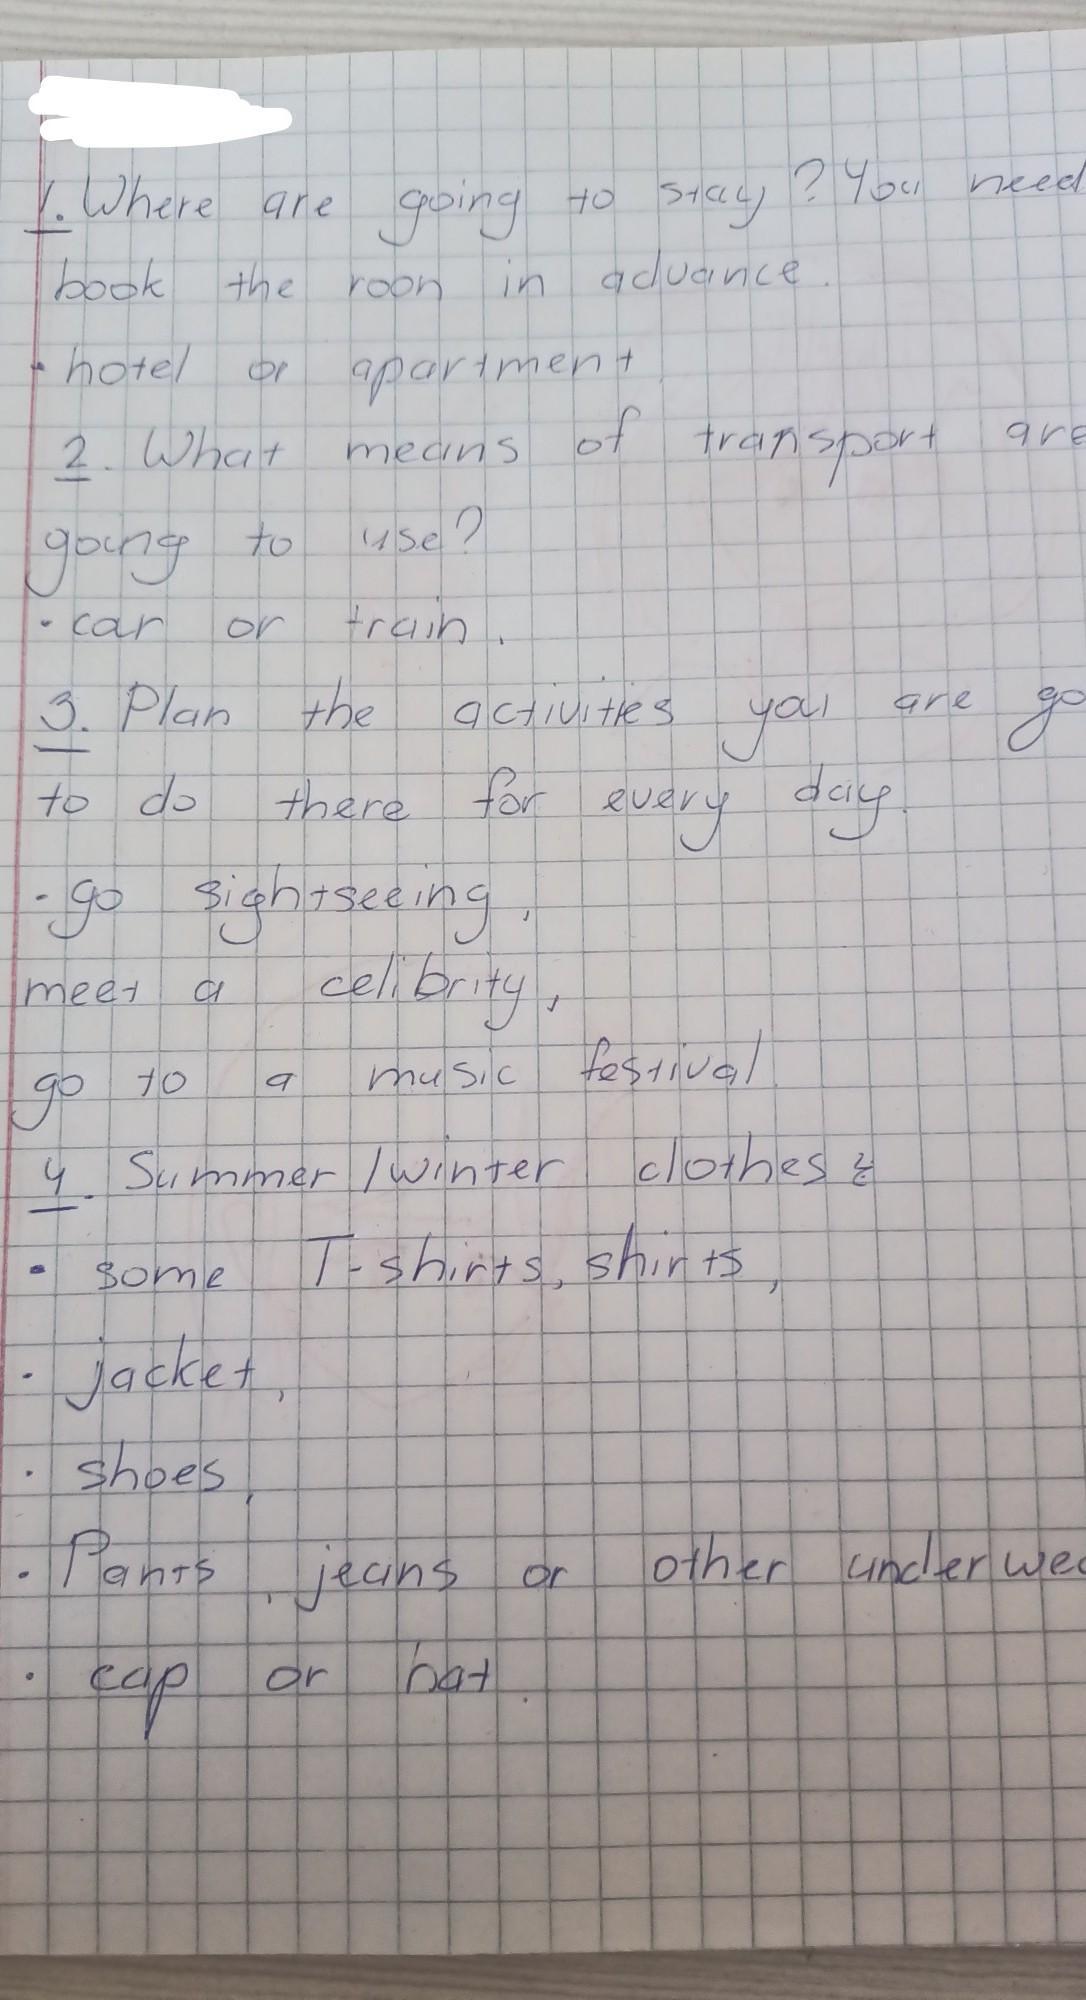 1. Where are going to stay? You need
book the roon in advance.
• hotel or apartment
2. What means of transport are
going to use?
• car or train.
3. Plan the activities you are go
to do there for every day.
• go sightseeing,
meet a celibrity,
go to a music festival
4. Summer/winter clothes:
• some T-shirts, shirts,
• jacket,
• shoes,
• Pants, jeans or other underwea
• cap or hat.